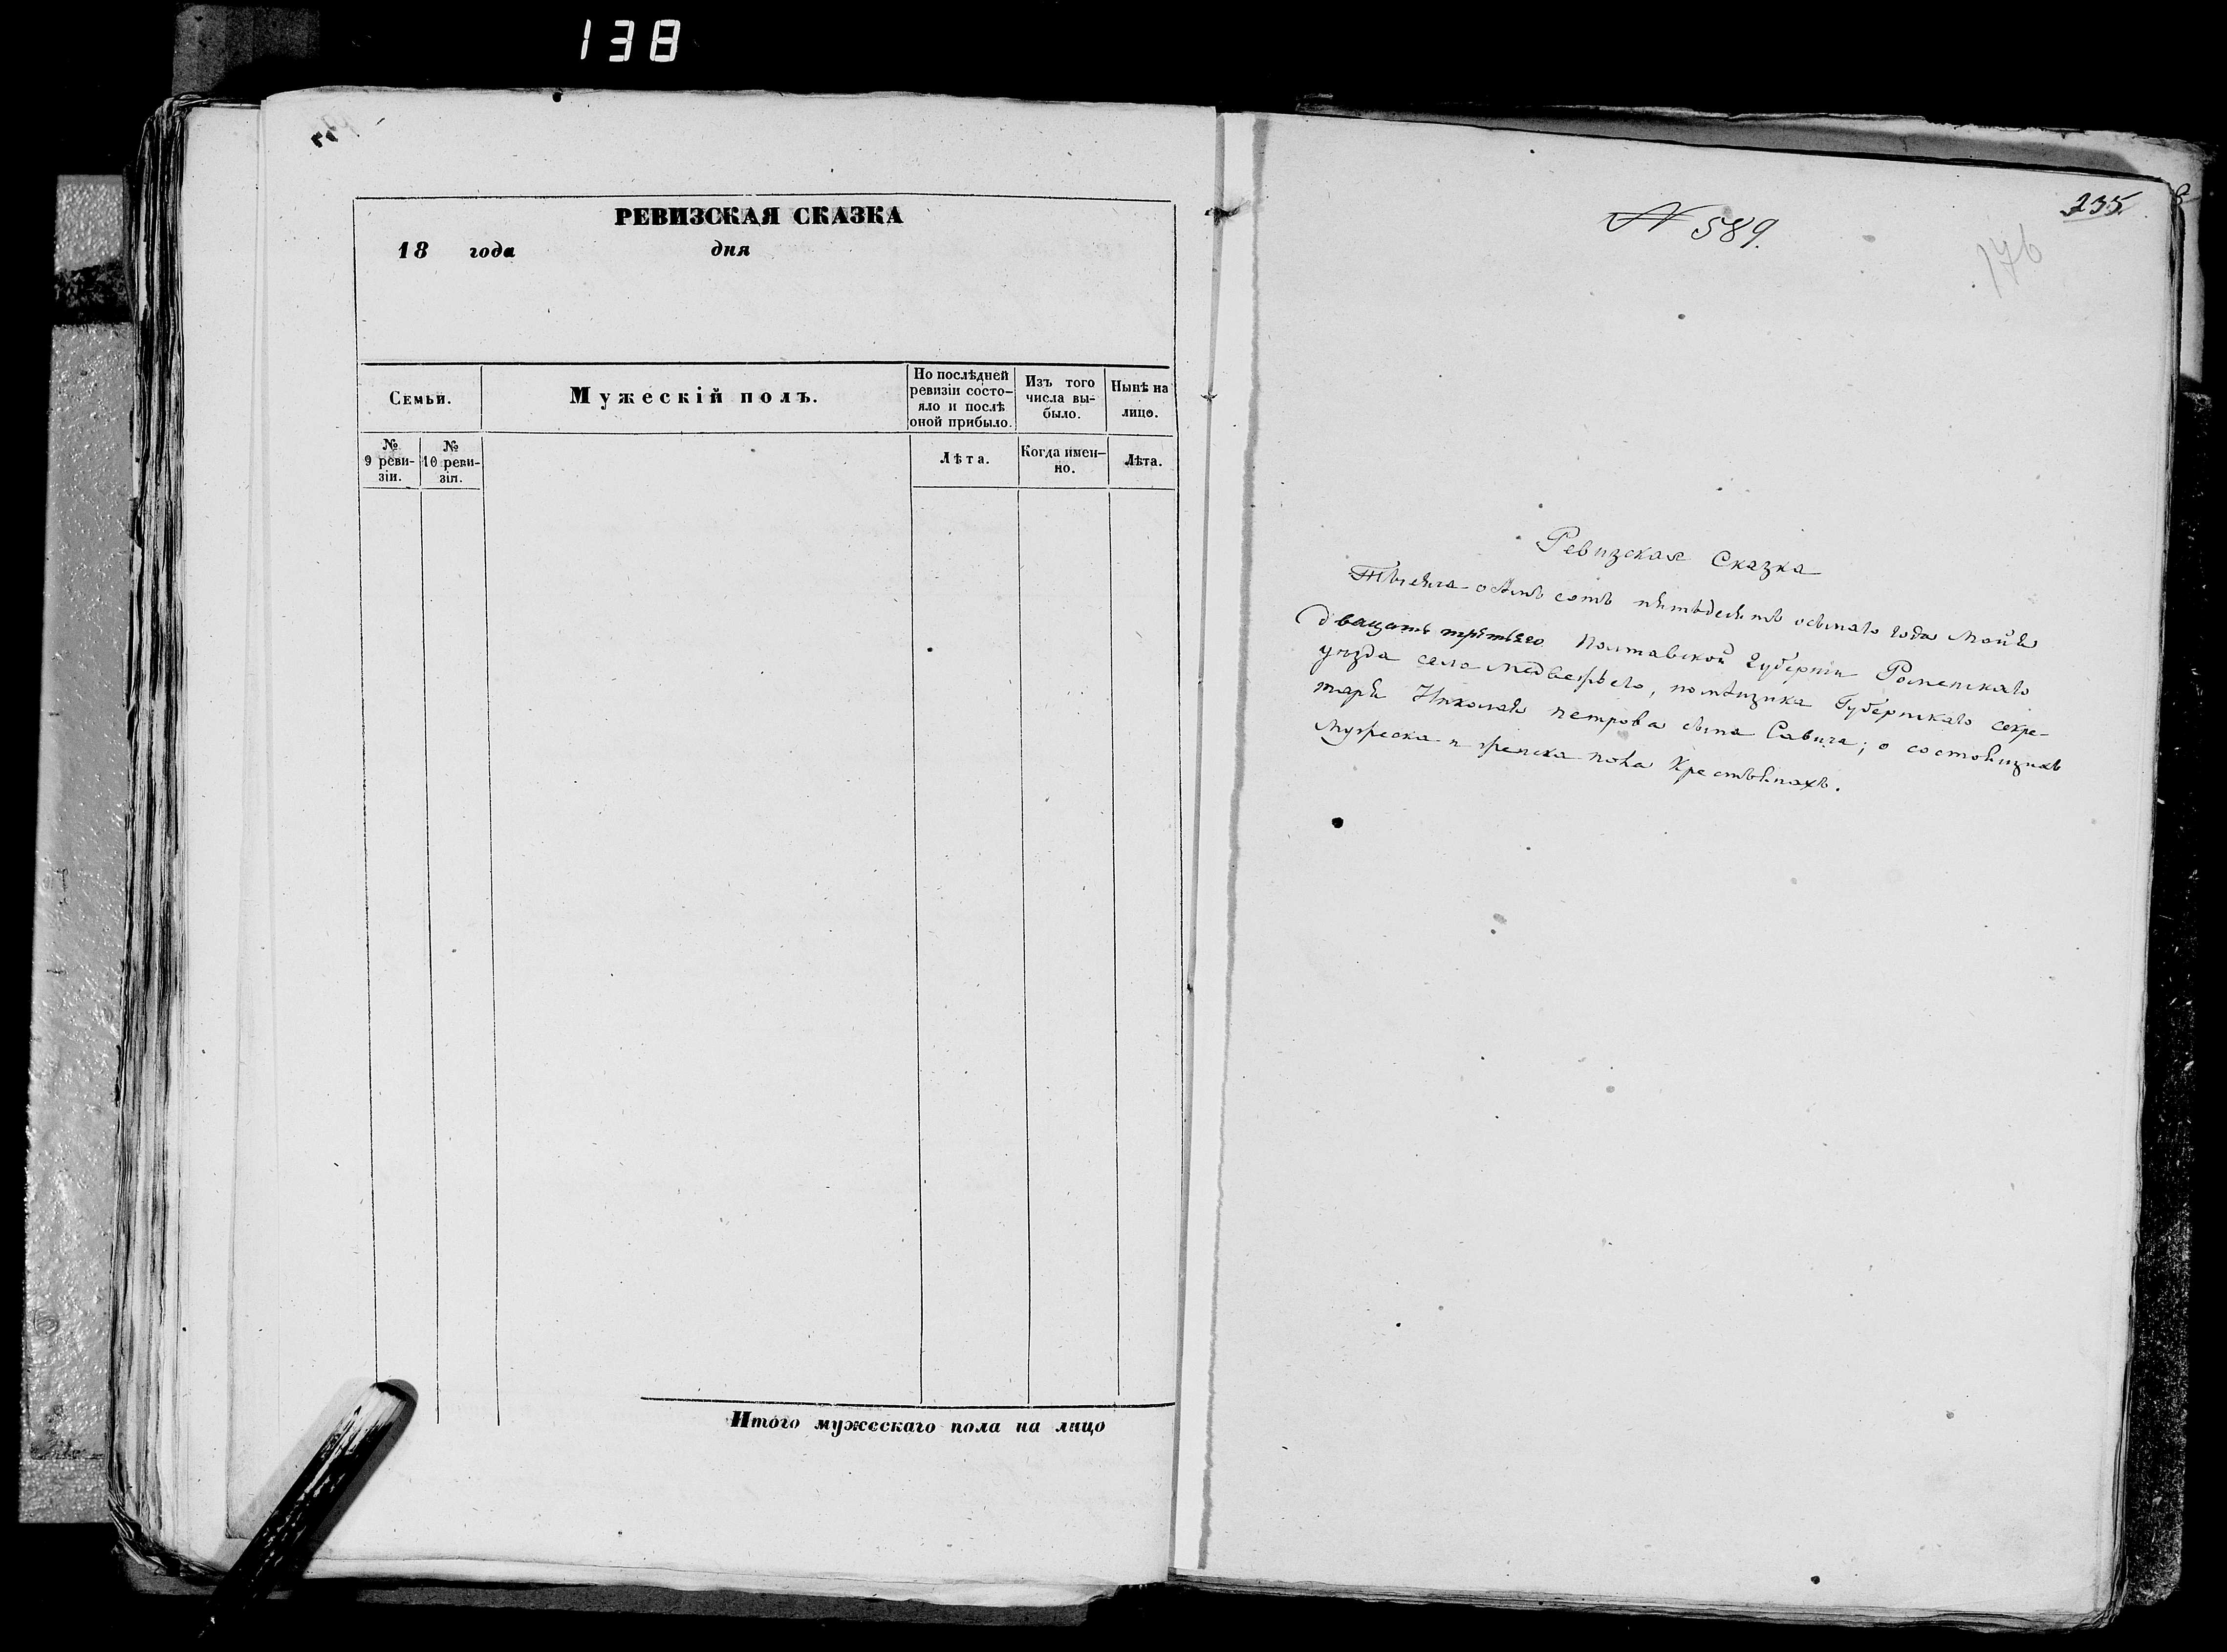 138
РЕВИЗСКАЯ СКАЗКА
18 года дня
Семьи.
Мужескій полъ.
По послѣдней
ревизіи состо-
яло и послѣ
оной прибыло.
Изъ того
числа вы-
было.
Нынѣ на
лицо.
№
9 реви-
зіи.
№
10 реви-
зіи.
Лѣта.
Когда имен-
но.
Лѣта.
Итого мужескаго пола на лицо
235
176
№ 589.
Ревизская Сказка
Тысяча осѣмъ сотъ пятьдесятъ осьмаго года Маія
двацать третьяго Полтавской Губерніи Роменскаго
уезда села Медвежьего, помѣщика Губернскаго секре-
таря Николая Петрова сына Савича; о состоящихъ
мужеска и женска пола Крестьянахъ.